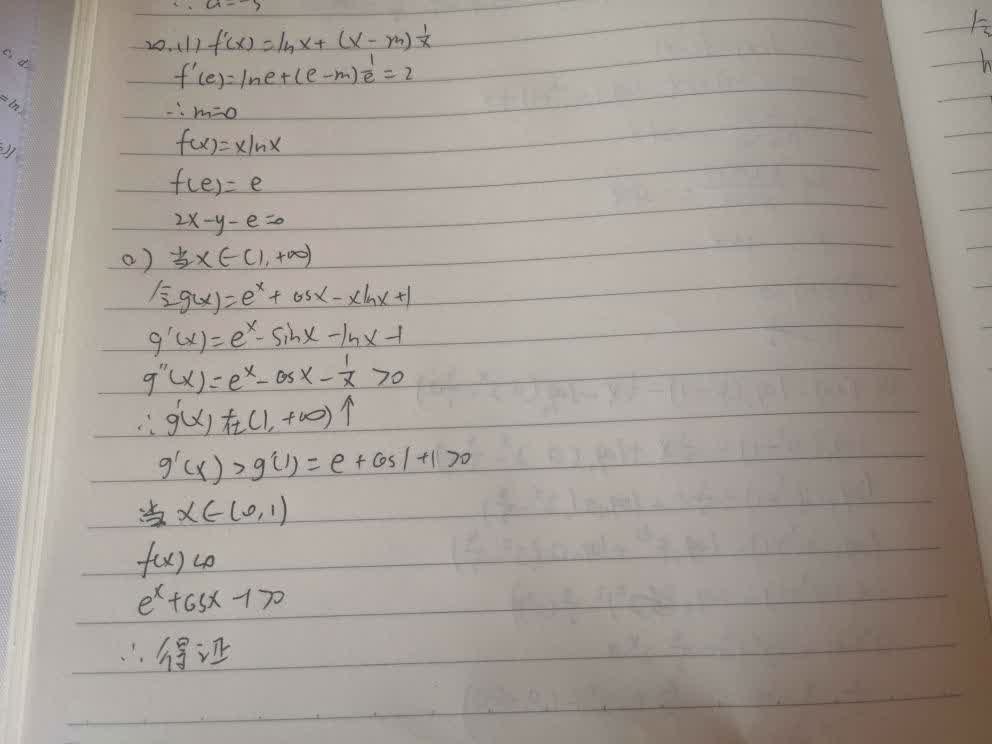 ∴ a=-5
20.(1) f'(x)=lnx+(x-m)1/x
f'(e)=lne+(e-m)1/e=2
∴m=0
f(x)=xlnx
f(e)=e
2x-y-e=0
当x∈(1,+∞)
令g(x)=e^x+cosx-xlnx+1
g'(x)=e^x-sinx-lnx-1
g''(x)=e^x-cosx-1/x>0
∴g'(x)在(1,+∞)↑
g'(x)>g'(1)=e+cos1+1>0
当x∈(0,1)
f(x)<0
e^x+cosx-1>0
∴得证